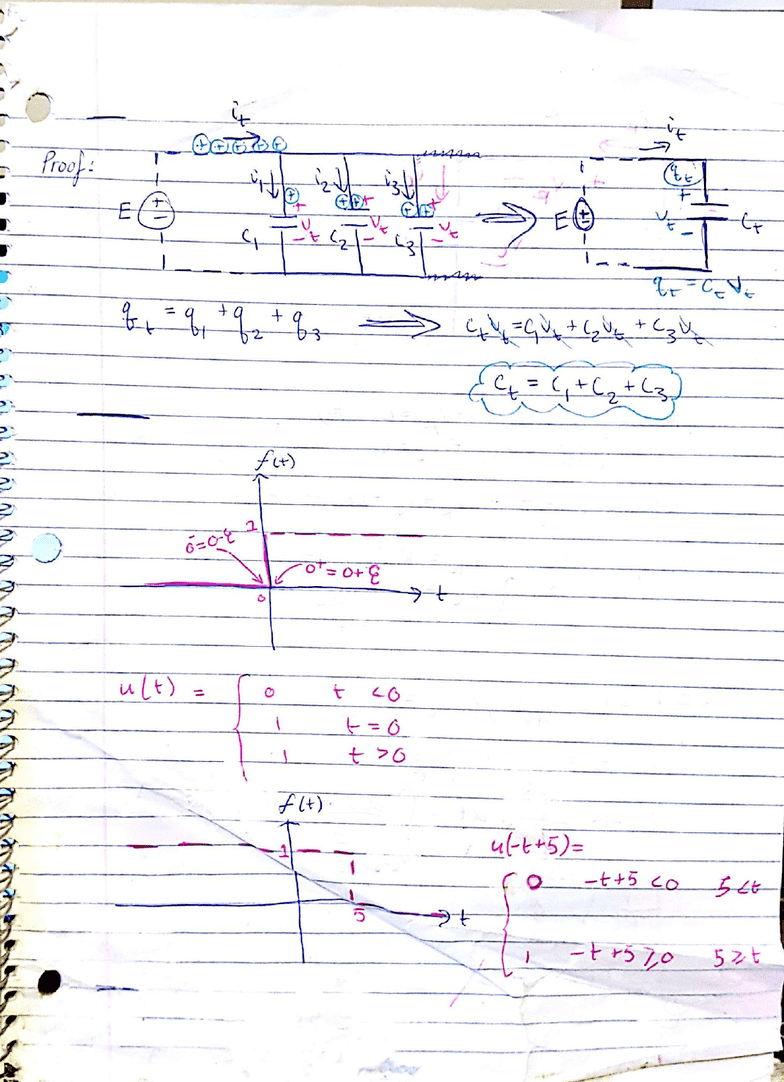 i_t i_t
Proof: i_1 i_2 i_3 q_t
+ + + + + + + + + + + + +
E + − C_1 − V_t C_2 − V_t C_3 − V_t ⟹ E + − V_t − C_t
q_t = C_t V_t
q_t = q_1 + q_2 + q_3 ⟹ C_t V_t = C_1 V_t + C_2 V_t + C_3 V_t
C_t = C_1 + C_2 + C_3
f(t)
1
0⁻ = 0-ξ
0⁺ = 0+ξ
0 t
u(t) = { 0 t < 0
1 t = 0
1 t > 0
f(t)
1 u(-t+5) =
{ 0 -t+5 < 0 5 < t
5 t
1 -t+5 ≥ 0 5 ≥ t